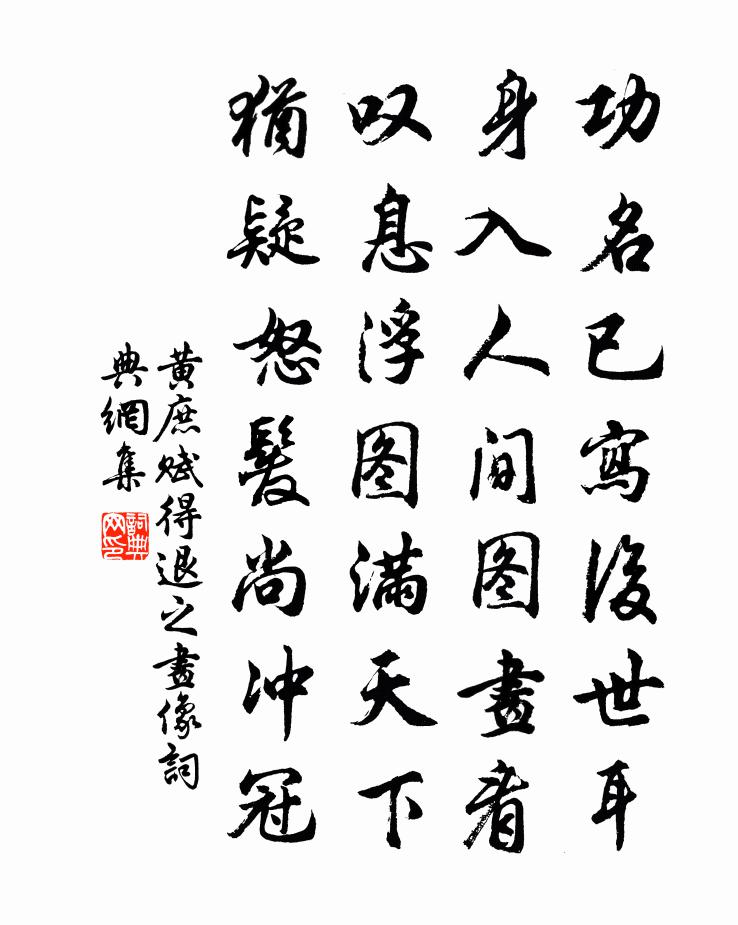 功名已寫後世耳
身入人间图畫看
叹息浮图滿天下
猶疑怒髮尚冲冠
黃庶賦得退之畫像詞
典網集
詞典
网印